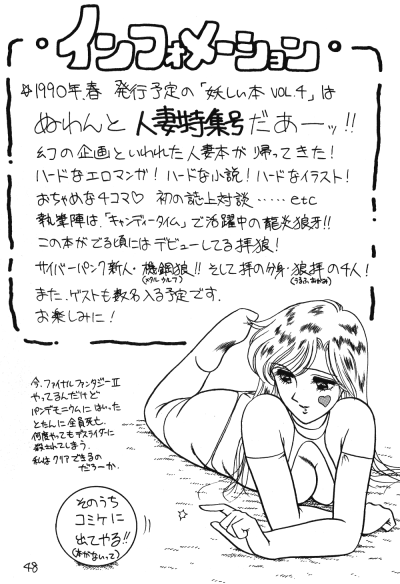 インフォメーション
☆1990年、春 発行予定の「妖しい本 VOL.4」は
ぬわんと 人妻特集号だあーッ!!
幻の企画といわれた人妻本が帰ってきた!
ハードなエロマンガ! ハードな小説! ハードなイラスト!
おちゃめな4コマ♡ 初の誌上対談……etc
執筆陣は、「キャンディータイム」で活躍中の龍炎狼牙!!
この本がでる頃にはデビューしてる拝狼!
サイバーパンク新人・機鋼狼!! そして拝の分身・狼拝の4人!
(メタルウルフ) (うるふおがみ)
また、ゲストも数名入る予定です。
お楽しみに!
今、ファイナルファンタジーⅡ
やってるんだけど
パンデモニウムにはいった
とたんに全員死亡.
何度やってもデスライダーに
殺されてしまう.
私はクリアできるの
だろーか.
そのうち
コミケに
出てやる!!
(本がないって)
48